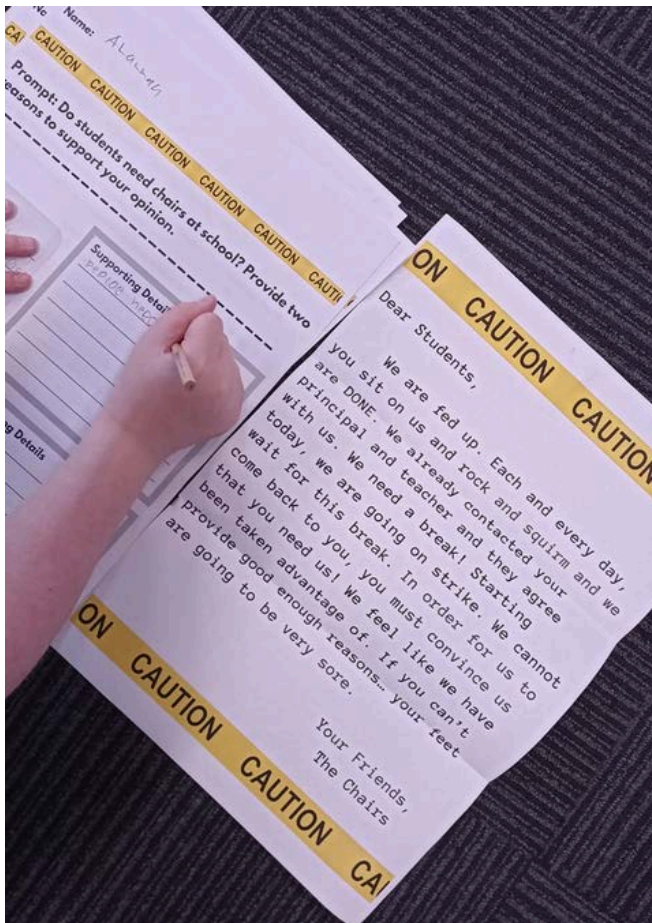 Name:
CAUTION CAUTION CAUTION CAUTION CAUTION
Prompt: Do students need chairs at school? Provide two
reasons to support your opinion.
Supporting Detai
People need
Details
ON CAUTION CAUTION
Dear Students,
We are fed up. Each and every day,
you sit on us and rock and squirm and we
are DONE. We already contacted your
principal and teacher and they agree
with us. We need a break! Starting
today, we are going on strike. We cannot
wait for this break. In order for us to
come back to you, you must convince us
that you need us! We feel like we have
been taken advantage of. If you can't
provide good enough reasons… your feet
are going to be very sore.
Your Friends,
The Chairs
ON CAUTION CAUTION CAU